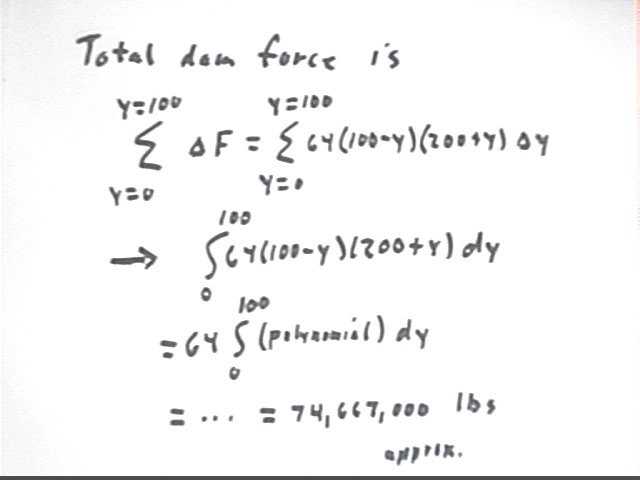 Total dam force is
Y=100 Y=100
∑ ΔF = ∑ 64(100-y)(200+y) Δy
Y=0 Y=0
100
→ ∫64(100-y)(200+y) dy
0
100
= 64 ∫ (polynomial) dy
0
= ... = 74,667,000 lbs
approx.